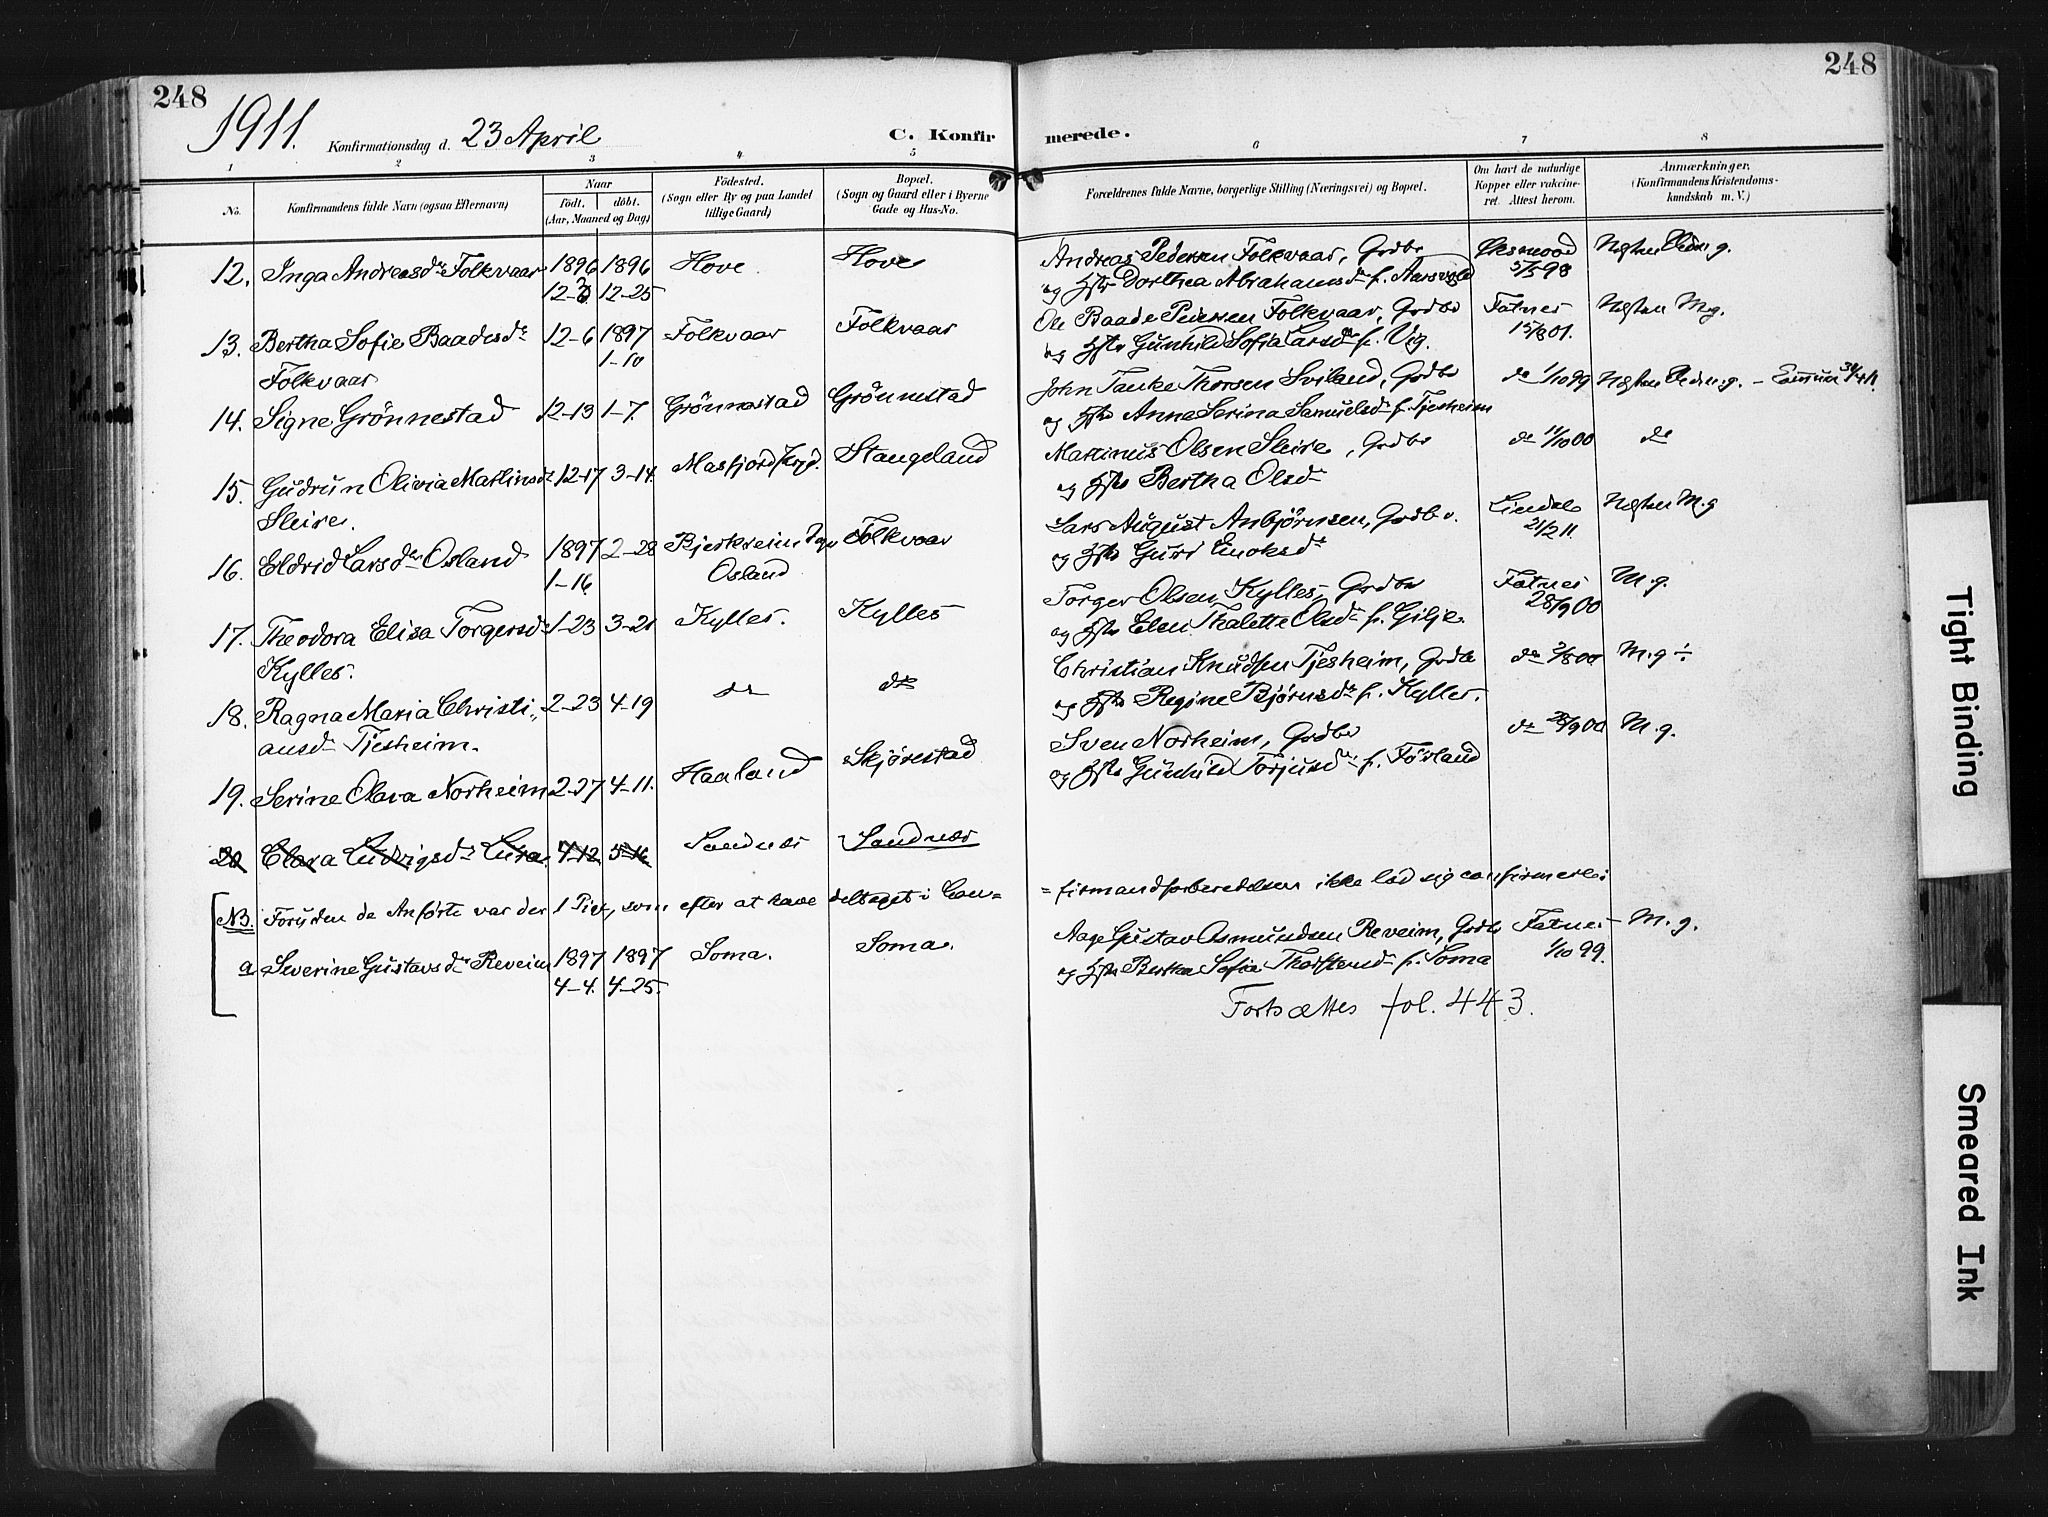 248
248
1911. Konfirmationsdag d. 23 April
C. Konfirmerede.
1 2 3 4 5 6 7 8
No.
Konfirmandens fulde Navn (ogsaa Efternavn)
Naar
Födt. döbt.
(Aar, Maaned og Dag)
Födested.
(Sogn eller By og paa Landet
tillige Gaard)
Bopæl.
(Sogn og Gaard eller i Byerne
Gade og Hus-No.
Forældrenes fulde Navne, borgerlige Stilling (Næringsvei) og Bopæl.
Om havt de naturlige
Kopper eller vakcine-
ret. Attest herom.
Anmærkninger.
(Konfirmandens Kristendoms-
kundskab m. V.)
12. Inga Andreasdr Folkvaar 1896 1896 Hove Hove
12-3 12-25
Andreas Pedersen Folkvaar, Grdbr
og Hstr Dorthea Abrahamsdr f. Aarsvold
98
13. Bertha Sofie Baadesdr 12-6 1897 Folkvaar Folkvaar
Folkvaar 1-10
Ole Baade Pedersen Folkvaar, Grdbr Fatnes Næsten M.g.
og Hstr Gunhild Sofia Larsdr f. Vig. 15/8 01.
14. Signe Grönnestad 12-13 1-7. Grönnestad Grönnestad
John Tanke Thorsen Sviland, Grdbr do 1/10 99
og Hstr Anne Serina Samuelsdr f. Tjesheim
15. Gudrun Olivia Martinsdr 12-17 3-14. Masfjord Stangeland
Sleire.
Martinus Olsen Sleire, Grdbr do 11/10 00 do
og Hstr Bertha Olsdr
16. Eldrid Larsdr Osland 1897 2-28 Bjerkreim Folkvaar
1-16 Osland
Lars August Anbjörnsen, Grdbr. Lindal Næsten M.g
og Hstr Guri Enoksdr 21/2 11.
17. Theodora Elisa Torgersdr 1-23 3-21 Kylles. Kylles
Kylles.
Torger Olsen Kylles, Grdbr Fatnes M.g.
og Hstr Elen Thalette Olsdr f. Gilje. 28/9 00
18. Ragna Maria Christi- 2-23 4-19 do do
ansdr Tjesheim.
Christian Knudsen Tjesheim, Grdbr do 3/8 00 M.g ÷
og Hstr Regine Bjørnsdr f. Kylles.
19. Serine Olava Norheim 2-27 4-11. Haaland Skjørestad
Sven Norheim, Grdbr do 28/9 00 M.g.
og Hstr Gunhild Torjusdr f. Förland
20 Clara Ludvigsdr Lura 4-12 5-16 Sandnæs Sandnæs
NB. Foruden de Anförte var der 1 Pige, som efter at have deltaget i Con-
=firmandforberedelsen ikke lod sig confirmere:
a Severine Gustavsdr Reveim 1897 1897 Soma. Soma.
4-4. 4-25.
Aage Gustav Osmundsen Reveim, Grdbr Fatnes M.g.
og Hstr Bertha Sofie Thorstensdr f. Soma 1/10 99.
Fortsættes fol. 443.
Tight Binding
Smeared Ink